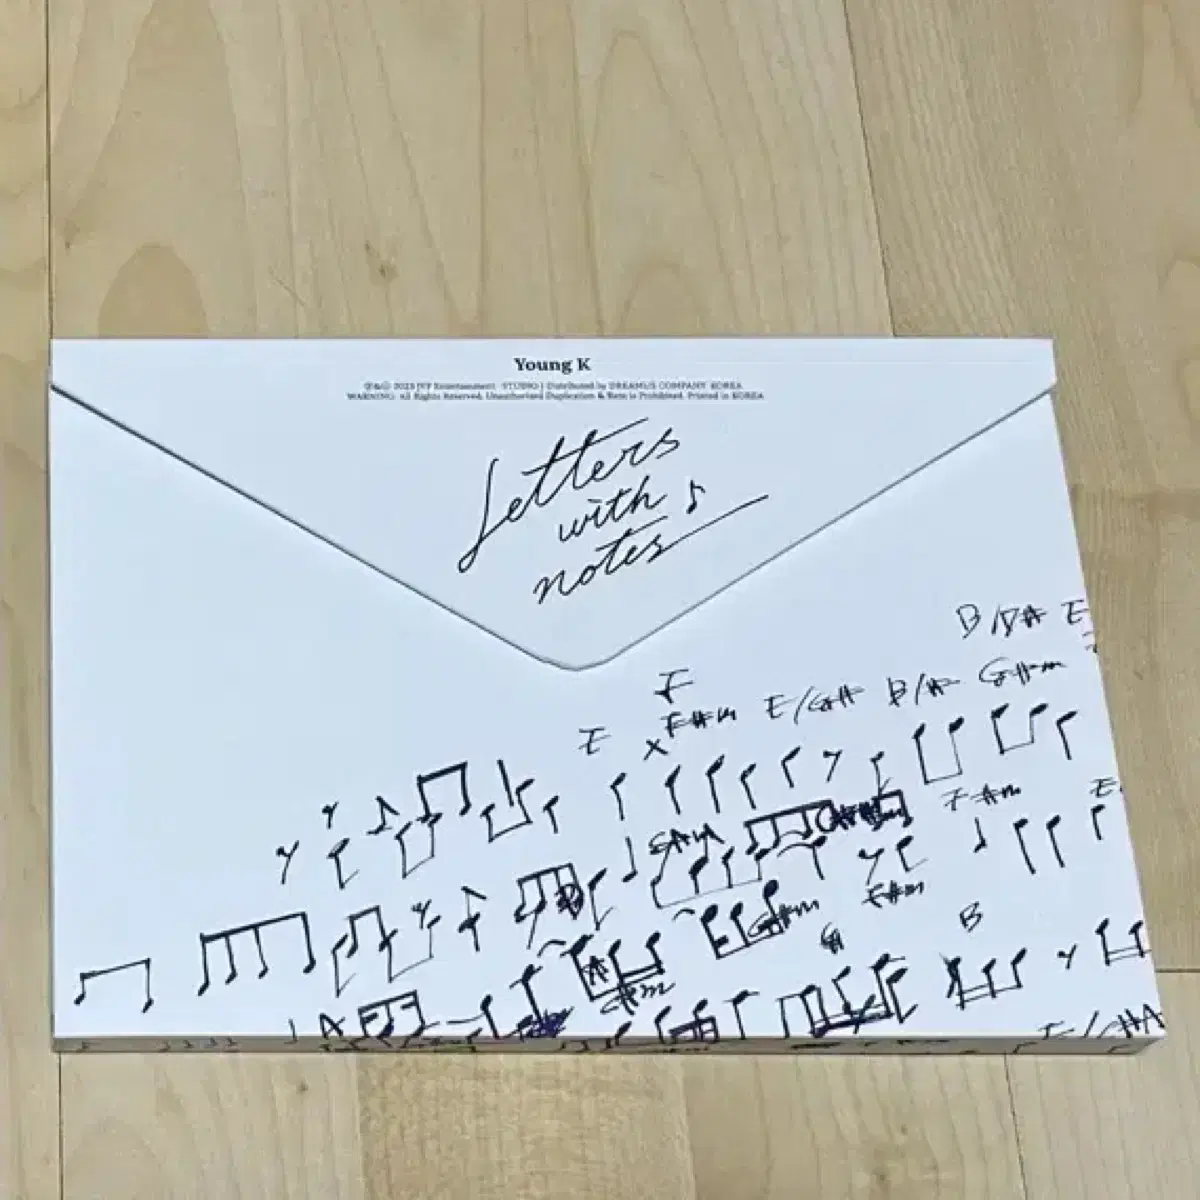 Young K
℗&© 2023 JYP Entertainment. STUDIO J Distributed by DREAMUS COMPANY KOREA
WARNING: All Rights Reserved. Unauthorized Duplication & Rent is Prohibited. Printed in KOREA
Letters
with ♪
notes
B/D# E
F
E F#m E/G# B/A G#m
F#m E
G#m
G#m F#m
B
A C#m
A E/G# A